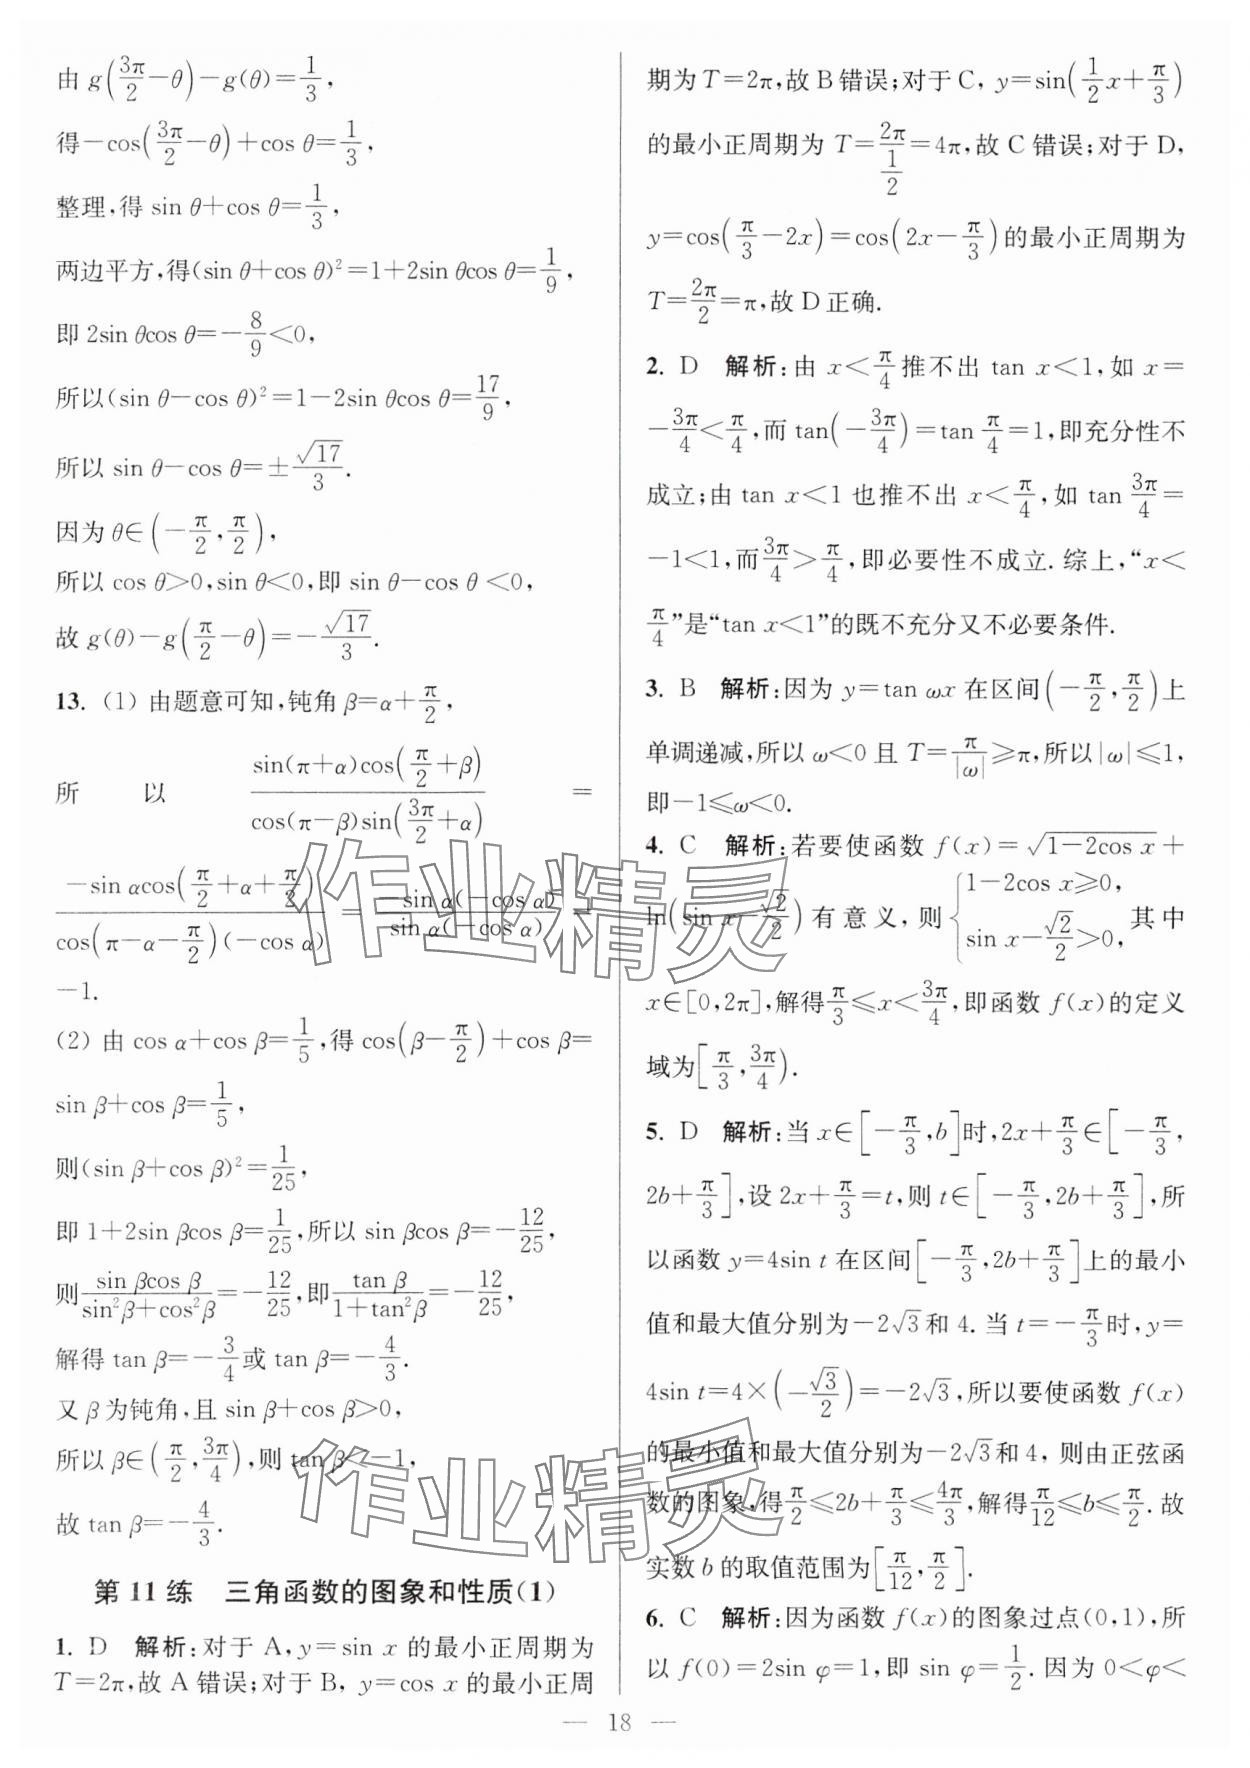 由 g(3π/2−θ)−g(θ)=1/3,
得−cos(3π/2−θ)+cos θ=1/3,
整理,得 sin θ+cos θ=1/3,
两边平方,得(sin θ+cos θ)²=1+2sin θcos θ=1/9,
即 2sin θcos θ=−8/9<0,
所以(sin θ−cos θ)²=1−2sin θcos θ=17/9,
所以 sin θ−cos θ=±√17/3.
因为 θ∈(−π/2,π/2),
所以 cos θ>0,sin θ<0,即 sin θ−cos θ <0,
故 g(θ)−g(π/2−θ)=−√17/3.
13. (1) 由题意可知,钝角 β=α+π/2,
所 以 sin(π+α)cos(π/2+β)/cos(π−β)sin(3π/2+α) =
−sin αcos(π/2+α+π/2)/cos(π−α−π/2)(−cos α) = −sin α(−cos α)/sin α(−cos α) =
−1.
(2) 由 cos α+cos β=1/5,得 cos(β−π/2)+cos β=
sin β+cos β=1/5,
则(sin β+cos β)²=1/25,
即 1+2sin βcos β=1/25,所以 sin βcos β=−12/25,
则 sin βcos β/sin²β+cos²β=−12/25,即 tan β/1+tan²β=−12/25,
解得 tan β=−3/4或 tan β=−4/3.
又 β 为钝角,且 sin β+cos β>0,
所以 β∈(π/2,3π/4),则 tan β<−1,
故 tan β=−4/3.
第 11 练 三角函数的图象和性质(1)
1. D 解析:对于 A,y=sin x 的最小正周期为
T=2π,故 A 错误;对于 B, y=cos x 的最小正周
期为 T=2π,故 B 错误;对于 C, y=sin(1/2x+π/3)
的最小正周期为 T=2π/(1/2)=4π,故 C 错误;对于 D,
y=cos(π/3−2x)=cos(2x−π/3)的最小正周期为
T=2π/2=π,故 D 正确.
2. D 解析:由 x<π/4推不出 tan x<1,如 x=
−3π/4<π/4,而 tan(−3π/4)=tan π/4=1,即充分性不
成立;由 tan x<1 也推不出 x<π/4,如 tan 3π/4=
−1<1,而3π/4>π/4,即必要性不成立.综上,“x<
π/4”是“tan x<1”的既不充分又不必要条件.
3. B 解析:因为 y=tan ωx 在区间(−π/2,π/2)上
单调递减,所以 ω<0 且 T=π/|ω|≥π,所以|ω|≤1,
即−1≤ω<0.
4. C 解析:若要使函数 f(x)=√1−2cos x+
ln(sin x−√2/2)有意义,则{1−2cos x≥0, sin x−√2/2>0,其中
x∈[0,2π],解得π/3≤x<3π/4,即函数 f(x)的定义
域为[π/3,3π/4).
5. D 解析:当 x∈[−π/3,b]时,2x+π/3∈[−π/3,
2b+π/3],设 2x+π/3=t,则 t∈[−π/3,2b+π/3],所
以函数 y=4sin t 在区间[−π/3,2b+π/3]上的最小
值和最大值分别为−2√3和 4. 当 t=−π/3时,y=
4sin t=4×(−√3/2)=−2√3,所以要使函数 f(x)
的最小值和最大值分别为−2√3和 4, 则由正弦函
数的图象,得π/2≤2b+π/3≤4π/3,解得π/12≤b≤π/2.故
实数 b 的取值范围为[π/12,π/2].
6. C 解析:因为函数 f(x)的图象过点(0,1),所
以 f(0)=2sin φ=1,即 sin φ=1/2.因为 0<φ<
— 18 —
作业精灵
作业精灵